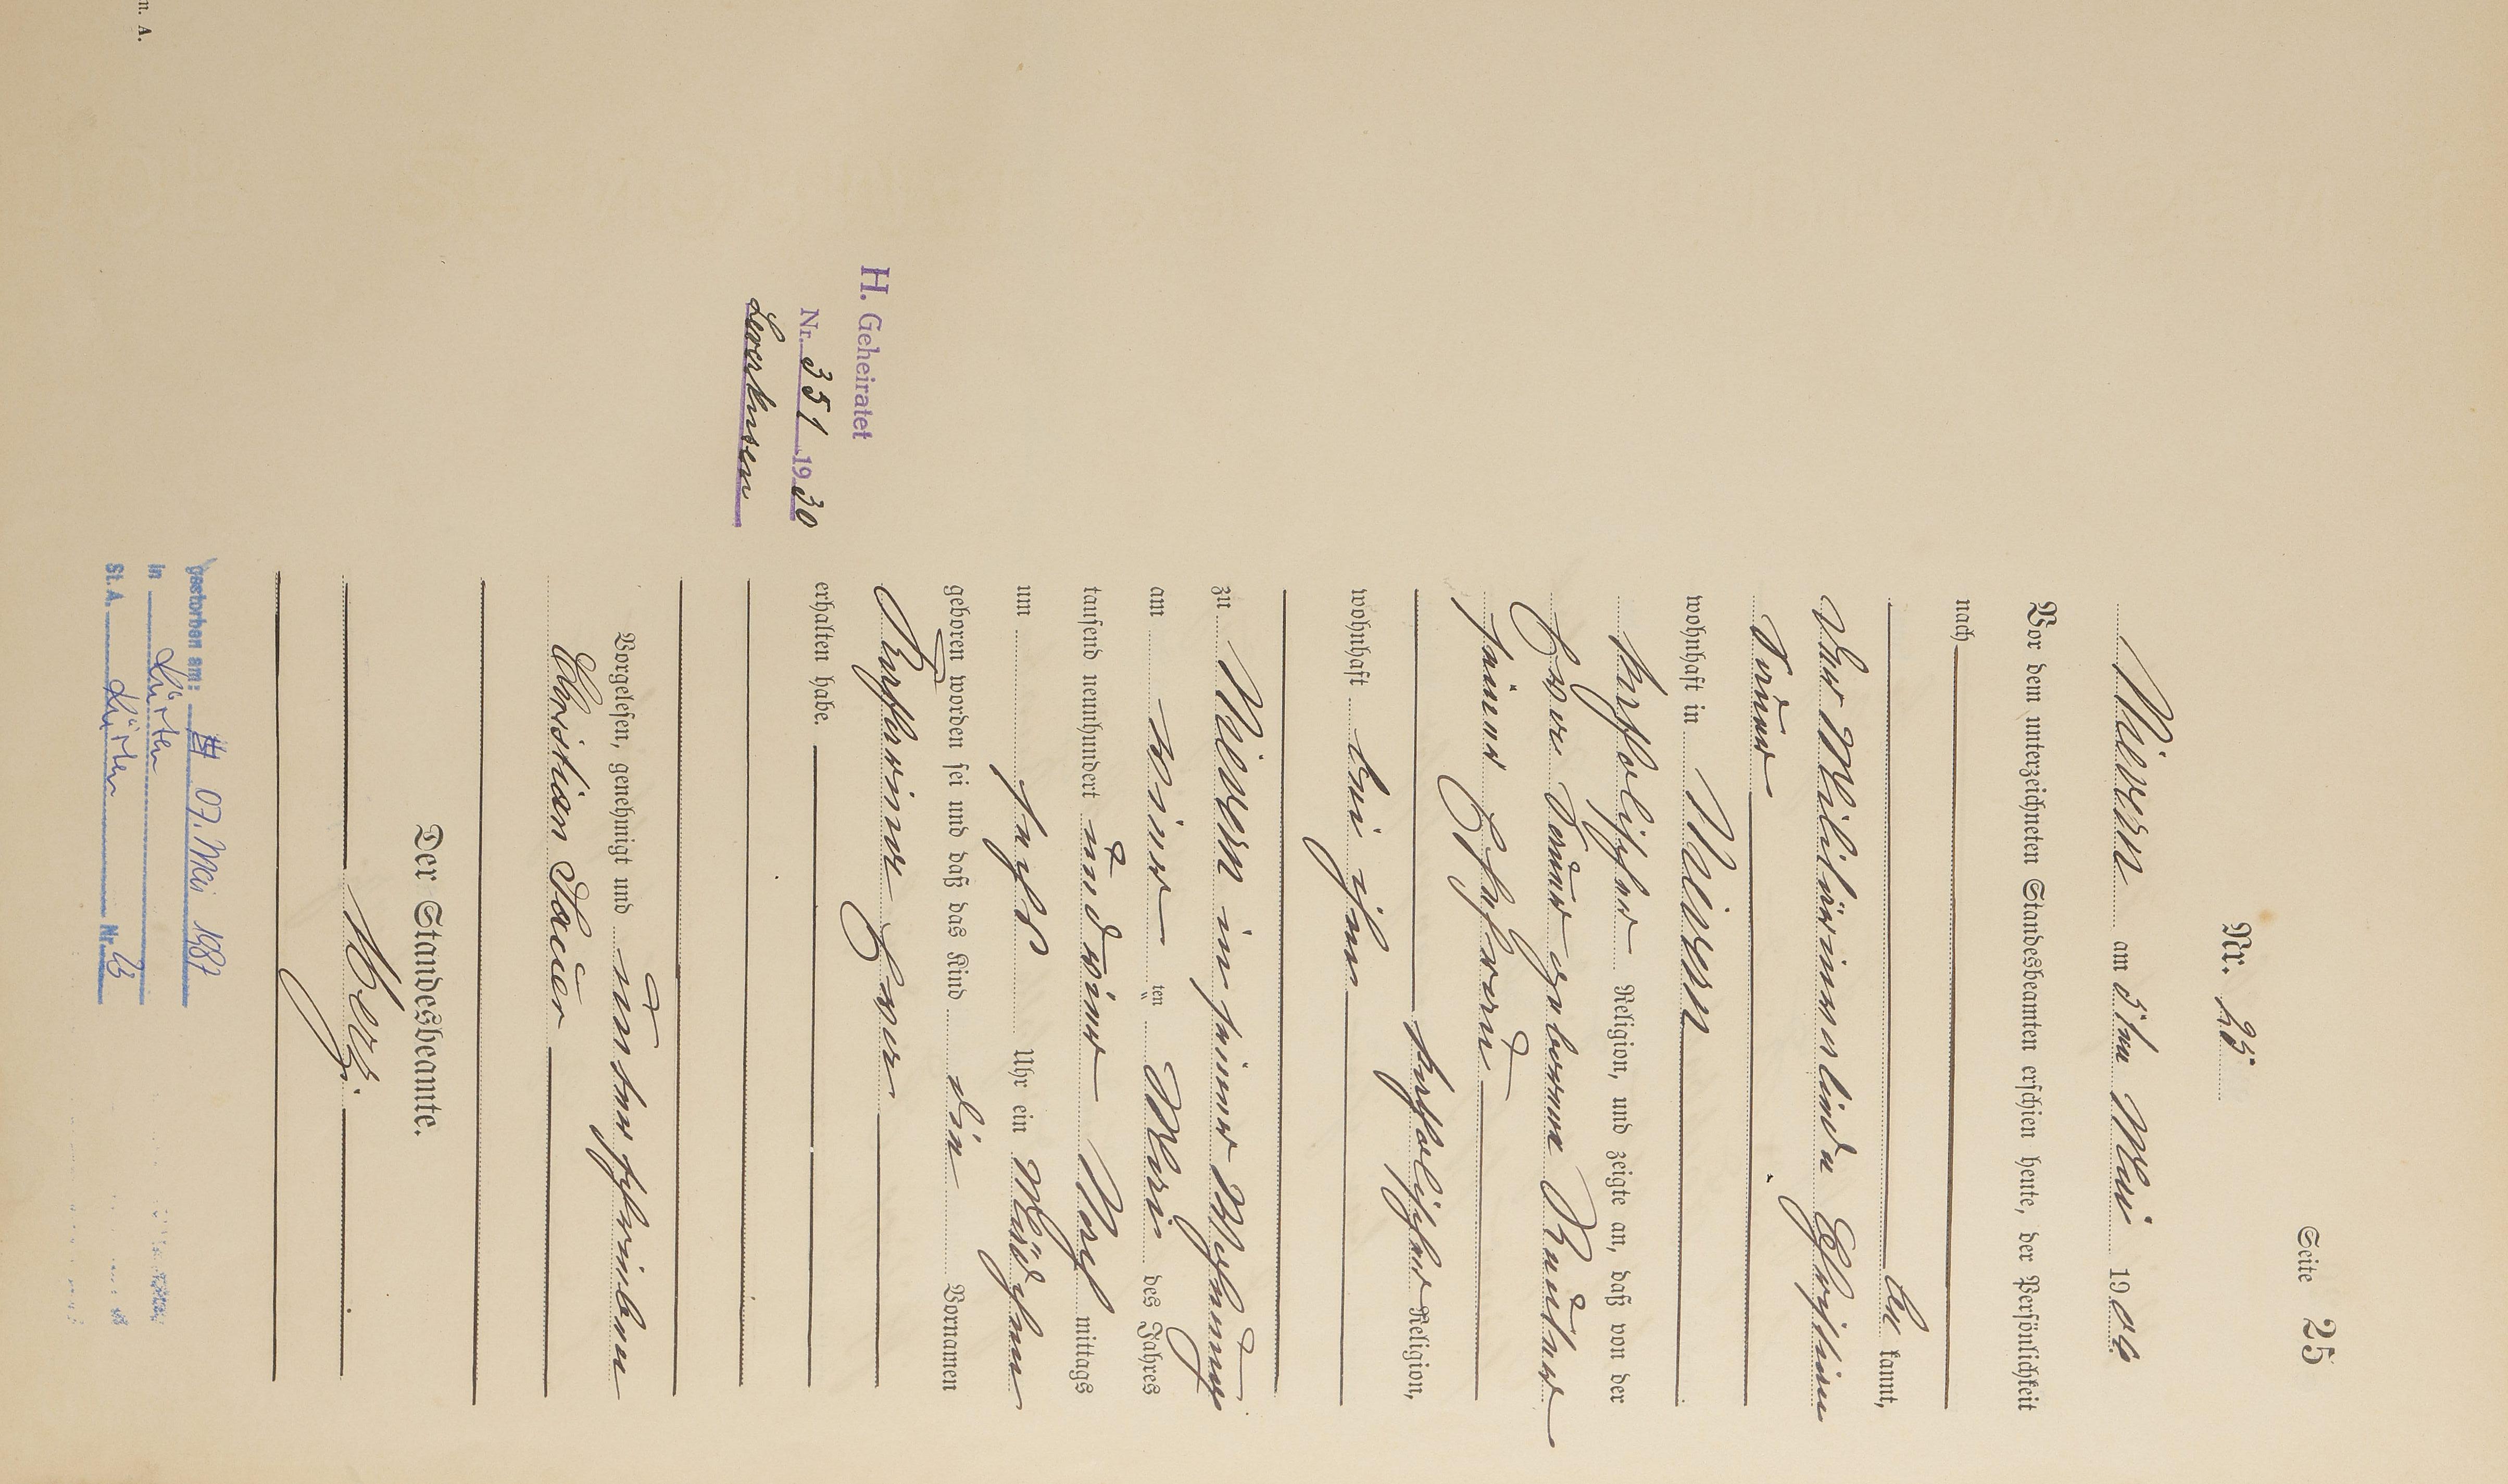 Seite 25
Nr. 25
Nievern am 5ten Mai 1904
Vor dem unterzeichneten Standesbeamten erschien heute, der Persönlichkeit
nach
be kannt,
der Militärinvalide Christian
Sauer
wohnhaft in Nievern
katholischer Religion, und zeigte an, daß von der
Eva Sauer geborene
seiner Ehefrau
katholischer Religion,
wohnhaft bei ihm
zu Nievern in seiner Wohnung
am vier ten Mai des Jahres
tausend neunhundert und vier Nach mittags
um sechs Uhr ein Mädchen
geboren worden sei und daß das Kind die Vornamen
Katharina Eva
erhalten habe.
H. Geheiratet
Nr. 351 1930
Leverkusen
Vorgelesen, genehmigt und unterschrieben
Christian Sauer
Der Standesbeamte.
gestorben am: 07. Mai 1987
in Kürten
St. A. Kürten Nr. 23